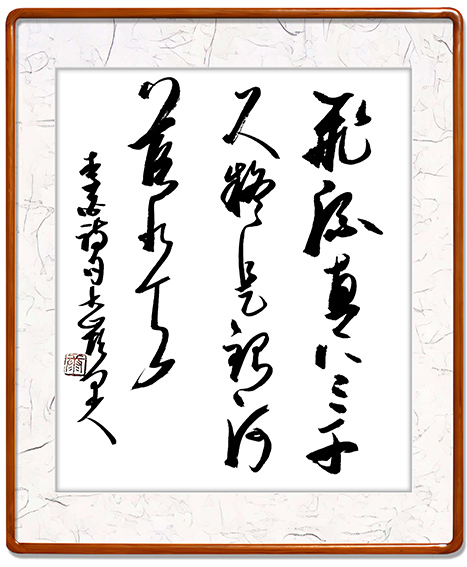 飛流直下三千
尺疑是銀河
落九天
李白詩句